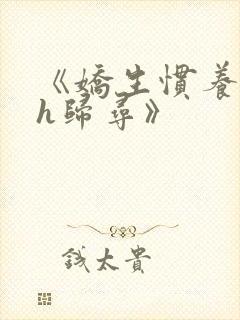 《嬌生慣養
h歸尋》
錢太貴